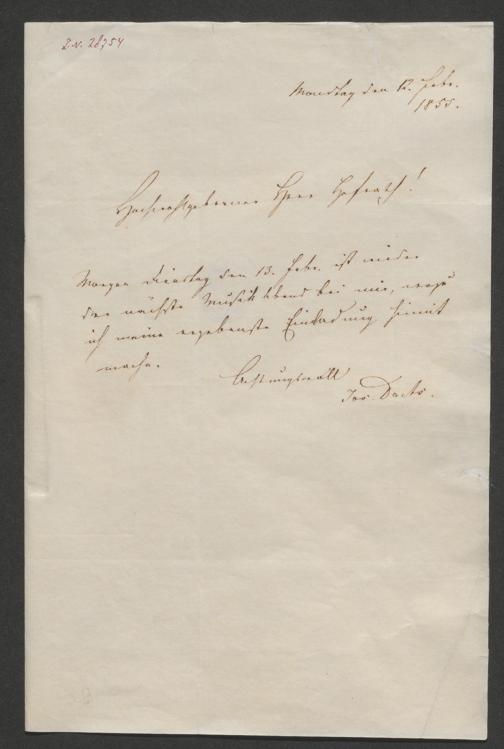 I.N. 28754
Montag den 12. Febr.
1855.
Hochwohlgeborner Herr Hofrath!
Morgen Dienstag den 13. Febr. ist wieder
der nächste Musik Abend bei mir, wozu
ich meine ergebenste Einladung hiemit
mache.
Achtungsvoll
Jos. Dachs.